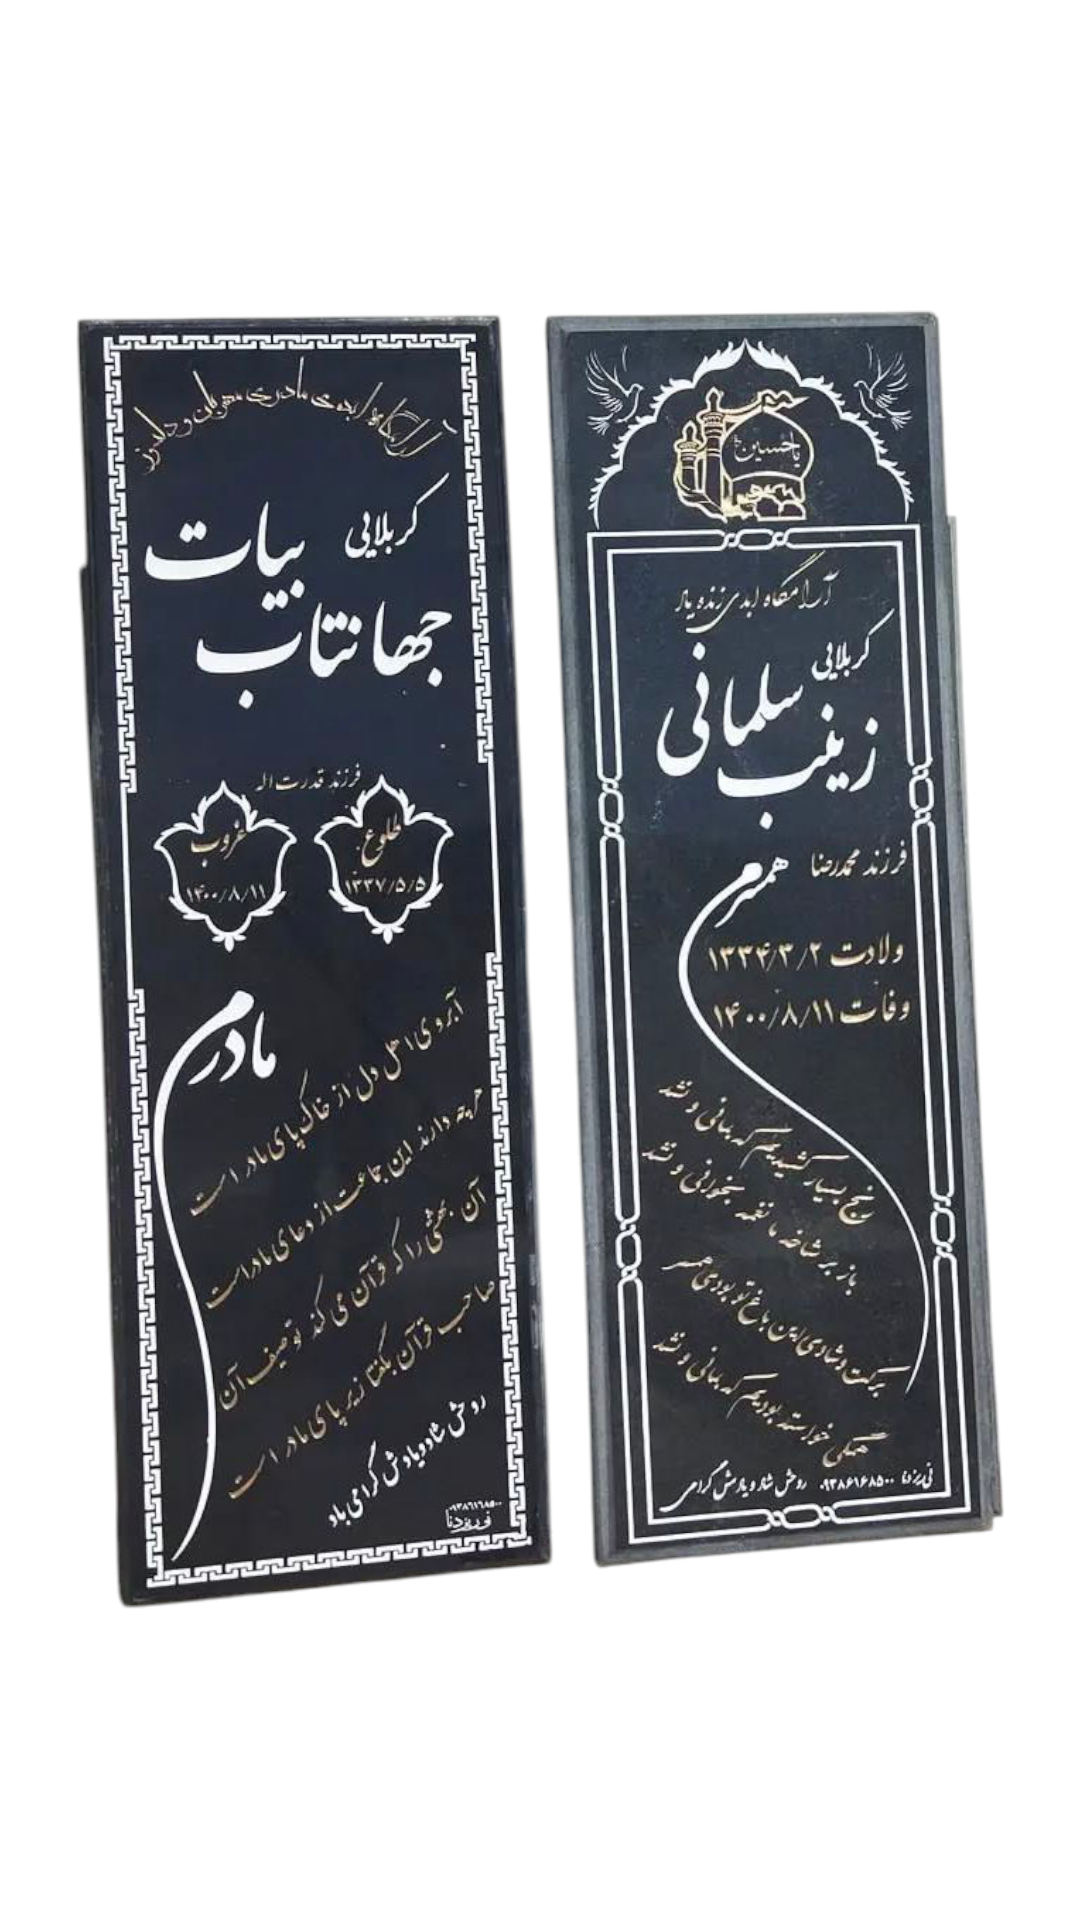 آرامگاه ابدی مادری مهربان و دلسوز
کربلایی
بیات
جهانتاب
فرزند قدرت اله
طلوع
۱۳۳۷/۵/۵
غروب
۱۴۰۰/۸/۱۱
مادرم
آبروی اهل دل از خاک پای مادر است
هرچه دارند این جماعت از دعای مادر است
آن بهشتی را که قرآن می کند توصیف آن
صاحب قرآن بگفتا زیر پای مادر است
روحش شاد و یادش گرامی باد
۰۹۳۸۶۱۶۸۵۰۰
نی ریز دنا
یا حسین
آرامگاه ابدی زنده یاد
کربلایی
زینب سلمانی
فرزند محمدرضا
همسرم
ولادت ۱۳۳۴/۳/۲
وفات ۱۴۰۰/۸/۱۱
رنج بسیار کشیدیم که بمانی و نشد
باز بر شاخه ما نغمه بخوانی و نشد
برکت و شادی این باغ تو بودی همسر
همگی خواسته بودیم که بمانی و نشد
نی ریز دنا ۰۹۳۸۶۱۶۸۵۰۰ روحش شاد و یادش گرامی